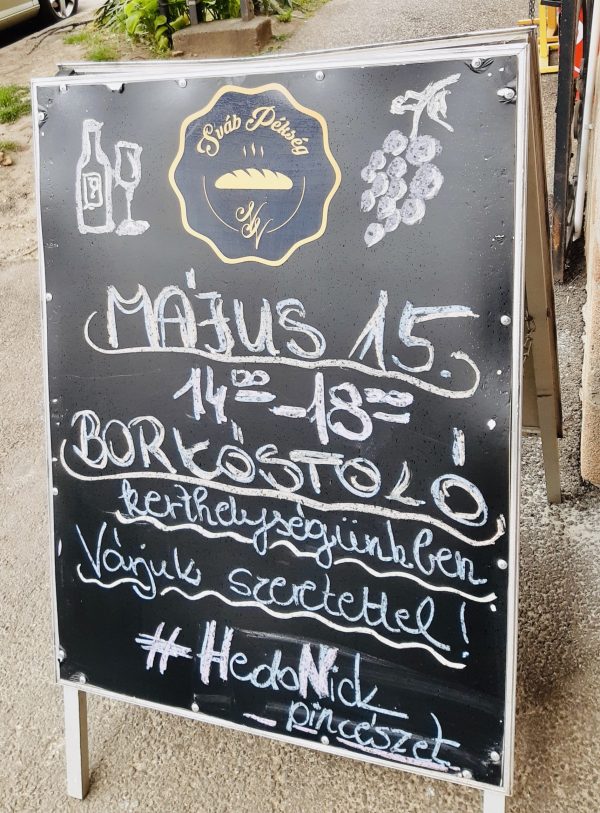 Sváb Pékség
NV
MÁJUS 15.
14⁰⁰-18⁰⁰
BORKÓSTOLÓ
kerthelységünkben
Várjuk szeretettel!
#HedoNick
pincészet